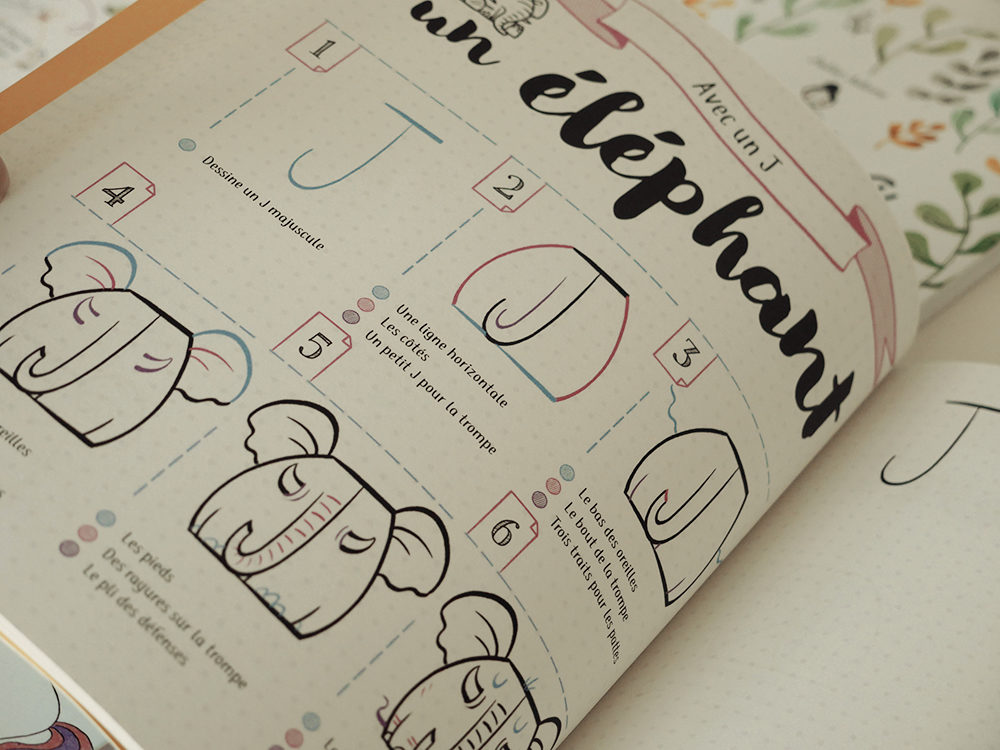 un éléphant
Avec un J
1
Dessine un J majuscule
2
Une ligne horizontale
Les côtés
Un petit J pour la trompe
3
Le bas des oreilles
Le bout de la trompe
Trois traits pour les pattes
4
oreilles
5
Les pieds
Des ragures sur la trompe
Le pli des défenses
6
J